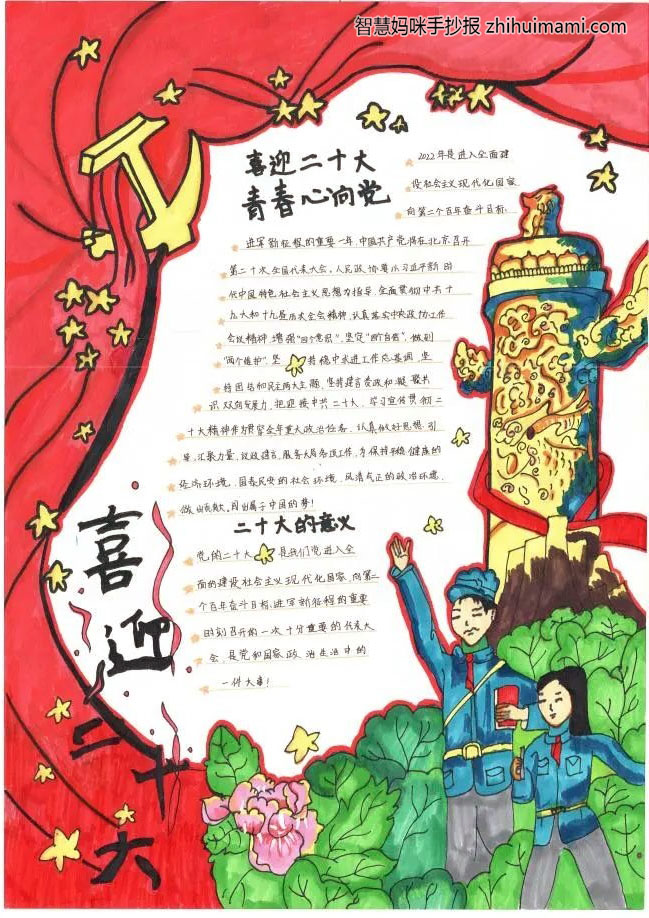 智慧妈咪手抄报 zhihuimami.com
喜迎二十大
青春心向党
2022年是进入全面建
设社会主义现代化国家
向第二个百年奋斗目标
进军新征程的重要一年,中国共产党将在北京召开
第二十次全国代表大会。人民政协要以习近平新时
代中国特色社会主义思想为指导,全面贯彻中共十
九大和十九届历次全会精神,认真落实中央政协工作
会议精神,增强"四个意识",坚定"四个自信",做到
"两个维护",坚持稳中求进工作总基调,坚
持团结和民主两大主题,坚持建言资政和凝聚共
识双向发力,把迎接中共二十大、学习宣传贯彻二
十大精神作为贯穿全年重大政治任务,认真做好思想引
导、汇聚力量、议政建言、服务大局各项工作,为保持平稳健康的
经济环境、国泰民安的社会环境、风清气正的政治环境,
二十大的意义
党的二十大是我们党进入全
面的建设社会主义现代化国家,向第二
个百年奋斗目标,进军新征程的重要
时刻召开的一次十分重要的代表大
会,是党和国家政治生活中的
一件大事!
喜迎二十大